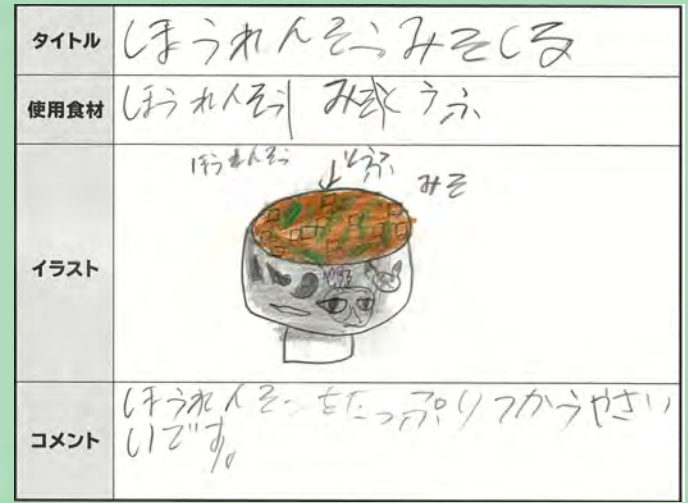 タイトル
ほうれんそうみそしる
使用食材
ほうれんそう みそ とうふ
イラスト
ほうれんそう
とうふ
みそ
コメント
ほうれんそうをたっぷりつかうやさい
いです。